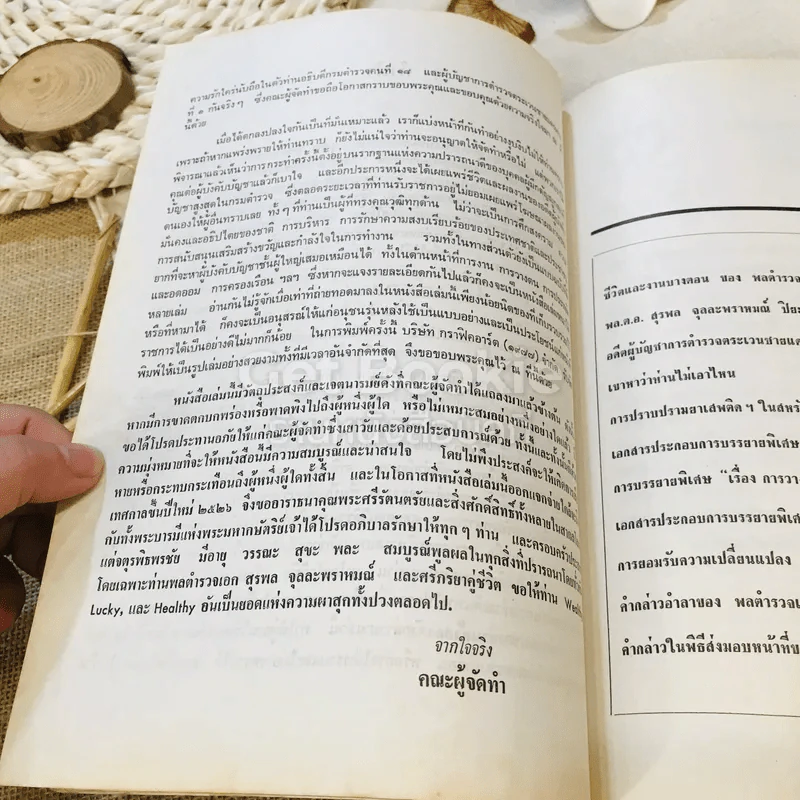 ความรักใคร่นับถือในตัวท่านอธิบดีกรมตำรวจคนที่ ๑๘ และผู้บัญชาการตำรวจตระเวนชายแดน
ที่ ๑ กันจริงๆ ซึ่งคณะผู้จัดทำขอถือโอกาสกราบขอบพระคุณและขอบคุณด้วยความจริงใจ
นี้ด้วย
เมื่อได้ตกลงปลงใจกันเป็นที่มั่นเหมาะแล้ว เราก็แบ่งหน้าที่กันทำอย่างงุบงิบไม่ให้ท่าน
เพราะถ้าหากแพร่งพรายให้ท่านทราบ ก็ยังไม่แน่ใจว่าท่านจะอนุญาตให้จัดทำหรือไม่
พิจารณาแล้วเห็นว่าการกระทำครั้งนี้ตั้งอยู่บนรากฐานแห่งความปรารถนาดีของบุคคลผู้รู้จัก
คุณต่อผู้บังคับบัญชาแล้วก็เบาใจ และอีกประการหนึ่งจะได้เผยแพร่ชีวิตและผลงานของ
บัญชาสูงสุดในกรมตำรวจ ซึ่งตลอดระยะเวลาที่ท่านรับราชการอยู่ไม่ยอมเผยแพร่โฆษณา
ตนเองให้ผู้อื่นทราบเลย ทั้งๆ ที่ท่านเป็นผู้ที่ทรงคุณวุฒิทุกด้าน ไม่ว่าจะเป็นการศึกสงคราม
มั่นคงและอธิปไตยของชาติ การบริหาร การรักษาความสงบเรียบร้อยของประเทศชาติและ
การสนับสนุนเสริมสร้างขวัญและกำลังใจในการทำงาน รวมทั้งในทางส่วนตัวยังเป็นแบบ
ยากที่จะหาผู้บังคับบัญชาชั้นผู้ใหญ่เสมอเหมือนได้ ทั้งในด้านหน้าที่การงาน การวางตน
และอดออม การครองเรือน ฯลฯ ซึ่งหากจะแจงรายละเอียดกันไปแล้วก็คงจะเป็นหนังสือ
หลายเล่ม อ่านกันไม่รู้จักเบื่อเท่าที่ถ่ายทอดมาลงในหนังสือเล่มนี้เพียงน้อยนิดของที่เก็บรวบรวม
หรือที่หามาได้ ก็คงจะเป็นอนุสรณ์ให้แก่อนุชนรุ่นหลังใช้เป็นแบบอย่างและเป็นประโยชน์
ราชการได้เป็นอย่างดีไม่มากก็น้อย ในการพิมพ์ครั้งนี้ บริษัท กราฟิคอาร์ต (๑๙๗๘) จำกัด
พิมพ์ให้เป็นรูปเล่มอย่างสวยงามทั้งที่มีเวลาอันจำกัดที่สุด จึงขอขอบพระคุณไว้ ณ ที่นี้ด้วย
หนังสือเล่มนี้มีวัตถุประสงค์และเจตนารมย์ดังที่คณะผู้จัดทำได้แถลงมาแล้วข้างต้น
หากมีการขาดตกบกพร่องหรือพาดพิงไปถึงผู้หนึ่งผู้ใด หรือไม่เหมาะสมอย่างหนึ่งอย่างใดแล้ว
ขอได้โปรดประทานอภัยให้แก่คณะผู้จัดทำซึ่งเยาวัยและด้อยประสบการณ์ด้วย ทั้งนี้และทั้งนั้น
ความมุ่งหมายที่จะให้หนังสือนี้มีความสมบูรณ์และน่าสนใจ โดยไม่พึงประสงค์จะให้เกิดความ
หายหรือกระทบกระเทือนถึงผู้หนึ่งผู้ใดทั้งสิ้น และในโอกาสที่หนังสือเล่มนี้ออกแจกจ่าย
เทศกาลขึ้นปีใหม่ ๒๕๒๖ จึงขออาราธนาคุณพระศรีรัตนตรัยและสิ่งศักดิ์สิทธิ์ทั้งหลายในสากล
กับทั้งพระบารมีแห่งพระมหากษัตริย์เจ้าได้โปรดอภิบาลรักษาให้ทุก ๆ ท่าน และครอบครัว
แต่จตุรพิธพรชัย มีอายุ วรรณะ สุขะ พละ สมบูรณ์พูลผลในทุกสิ่งที่ปรารถนา
โดยเฉพาะท่านพลตำรวจเอก สุรพล จุลละพราหมณ์ และศรีภริยาคู่ชีวิต ขอให้ท่าน
Lucky, และ Healthy อันเป็นยอดแห่งความผาสุกทั้งปวงตลอดไป.
จากใจจริง
คณะผู้จัดทำ
Get Bookie
ชีวิตและงานบางตอน ของ พลตำรวจ
พล.ต.อ. สุรพล จุลละพราหมณ์ ปิยะ
อดีตผู้บัญชาการตำรวจตระเวนชายแด
เขาหาว่าท่านไม่เอาไหน
การปราบปรามยาเสพติด ฯ ในสหรั
เอกสารประกอบการบรรยายพิเศษ
การบรรยายพิเศษ “เรื่อง การวาง
เอกสารประกอบการบรรยายพิเศษ
การยอมรับความเปลี่ยนแปลง
คำกล่าวอำลาของ พลตำรวจเ
คำกล่าวในพิธีส่งมอบหน้าที่ข